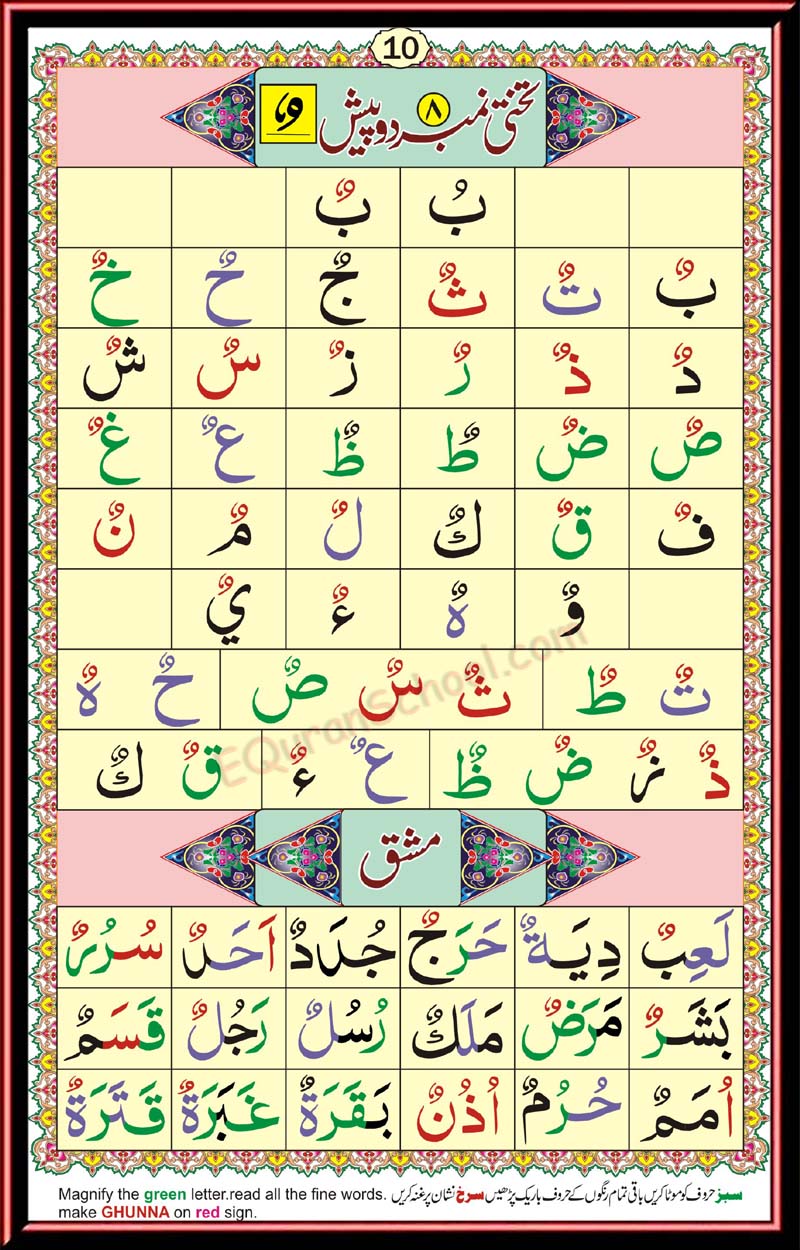 10
تختی نمبر ٨ دو پیش
بُ بٌ
بٌ تٌ ثٌ جٌ حٌ خٌ
دٌ ذٌ رٌ زٌ سٌ شٌ
صٌ ضٌ طٌ ظٌ عٌ غٌ
فٌ قٌ كٌ لٌ مٌ نٌ
وٌ هٌ ءٌ يٌ
تٌ طٌ ثٌ سٌ صٌ حٌ هٌ
ذٌ زٌ ضٌ ظٌ عٌ ءٌ قٌ كٌ
EQuranSchool.com
مشق
لَعِبٌ دِيَةٌ حَرَجٌ جُدَدٌ اَحَدٌ سُرُرٌ
بَشَرٌ مَرَضٌ مَلَكٌ رُسُلٌ رَجُلٌ قَسَمٌ
اُمَمٌ حُرُمٌ اُذُنٌ بَقَرَةٌ غَبَرَةٌ قَتَرَةٌ
سبز حروف کو موٹا کریں باقی تمام رنگوں کے حروف باریک پڑھیں سرخ نشان پر غنہ کریں
Magnify the green letter.read all the fine words.
make GHUNNA on red sign.